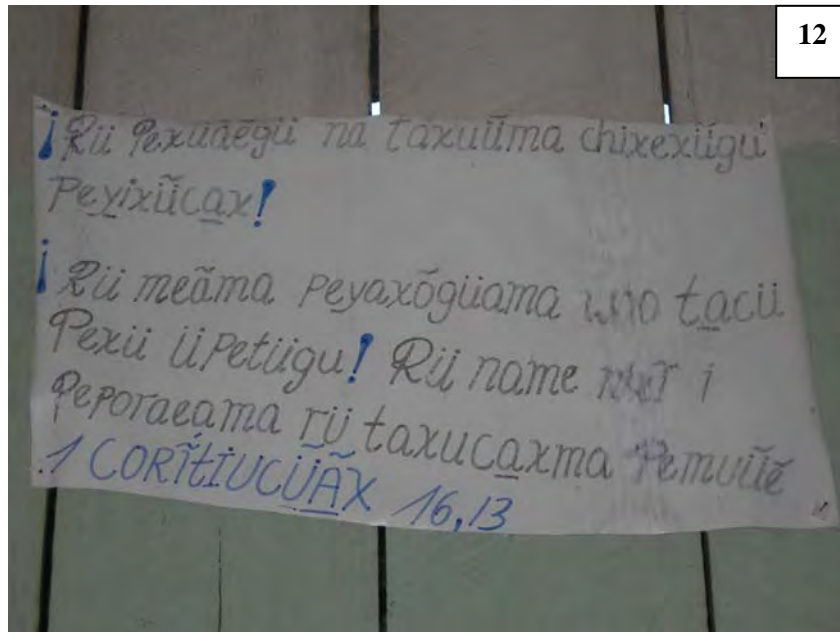 12
¡Rü Pexuãẽgü na taxuũma chixexü̃gu
Peyixü̃ca̲x!
¡Rü meãma peyaxõgüama tacü
Pexü ü̃Petü̃gu! Rü name i
Peporaeãma rü̲ taxuca̲xma Pemuü̃ẽ
1 CORĨTIUCÜ̲Ã̲X 16,13